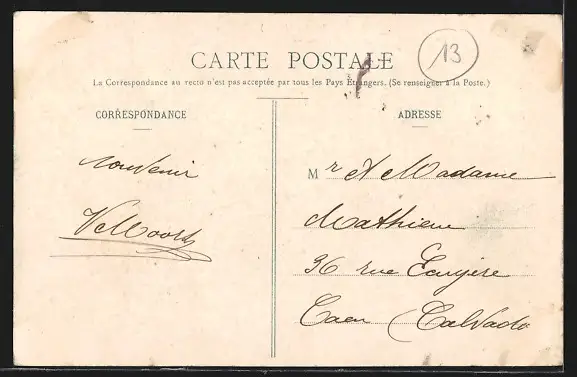 CARTE POSTALE
13
La Correspondance au recto n'est pas acceptée par tous les Pays Étrangers. (Se renseigner à la Poste.)
CORRESPONDANCE
ADRESSE
souvenir
Mr et Madame
Mathieu
36 rue Ecuyère
Caen (Calvado